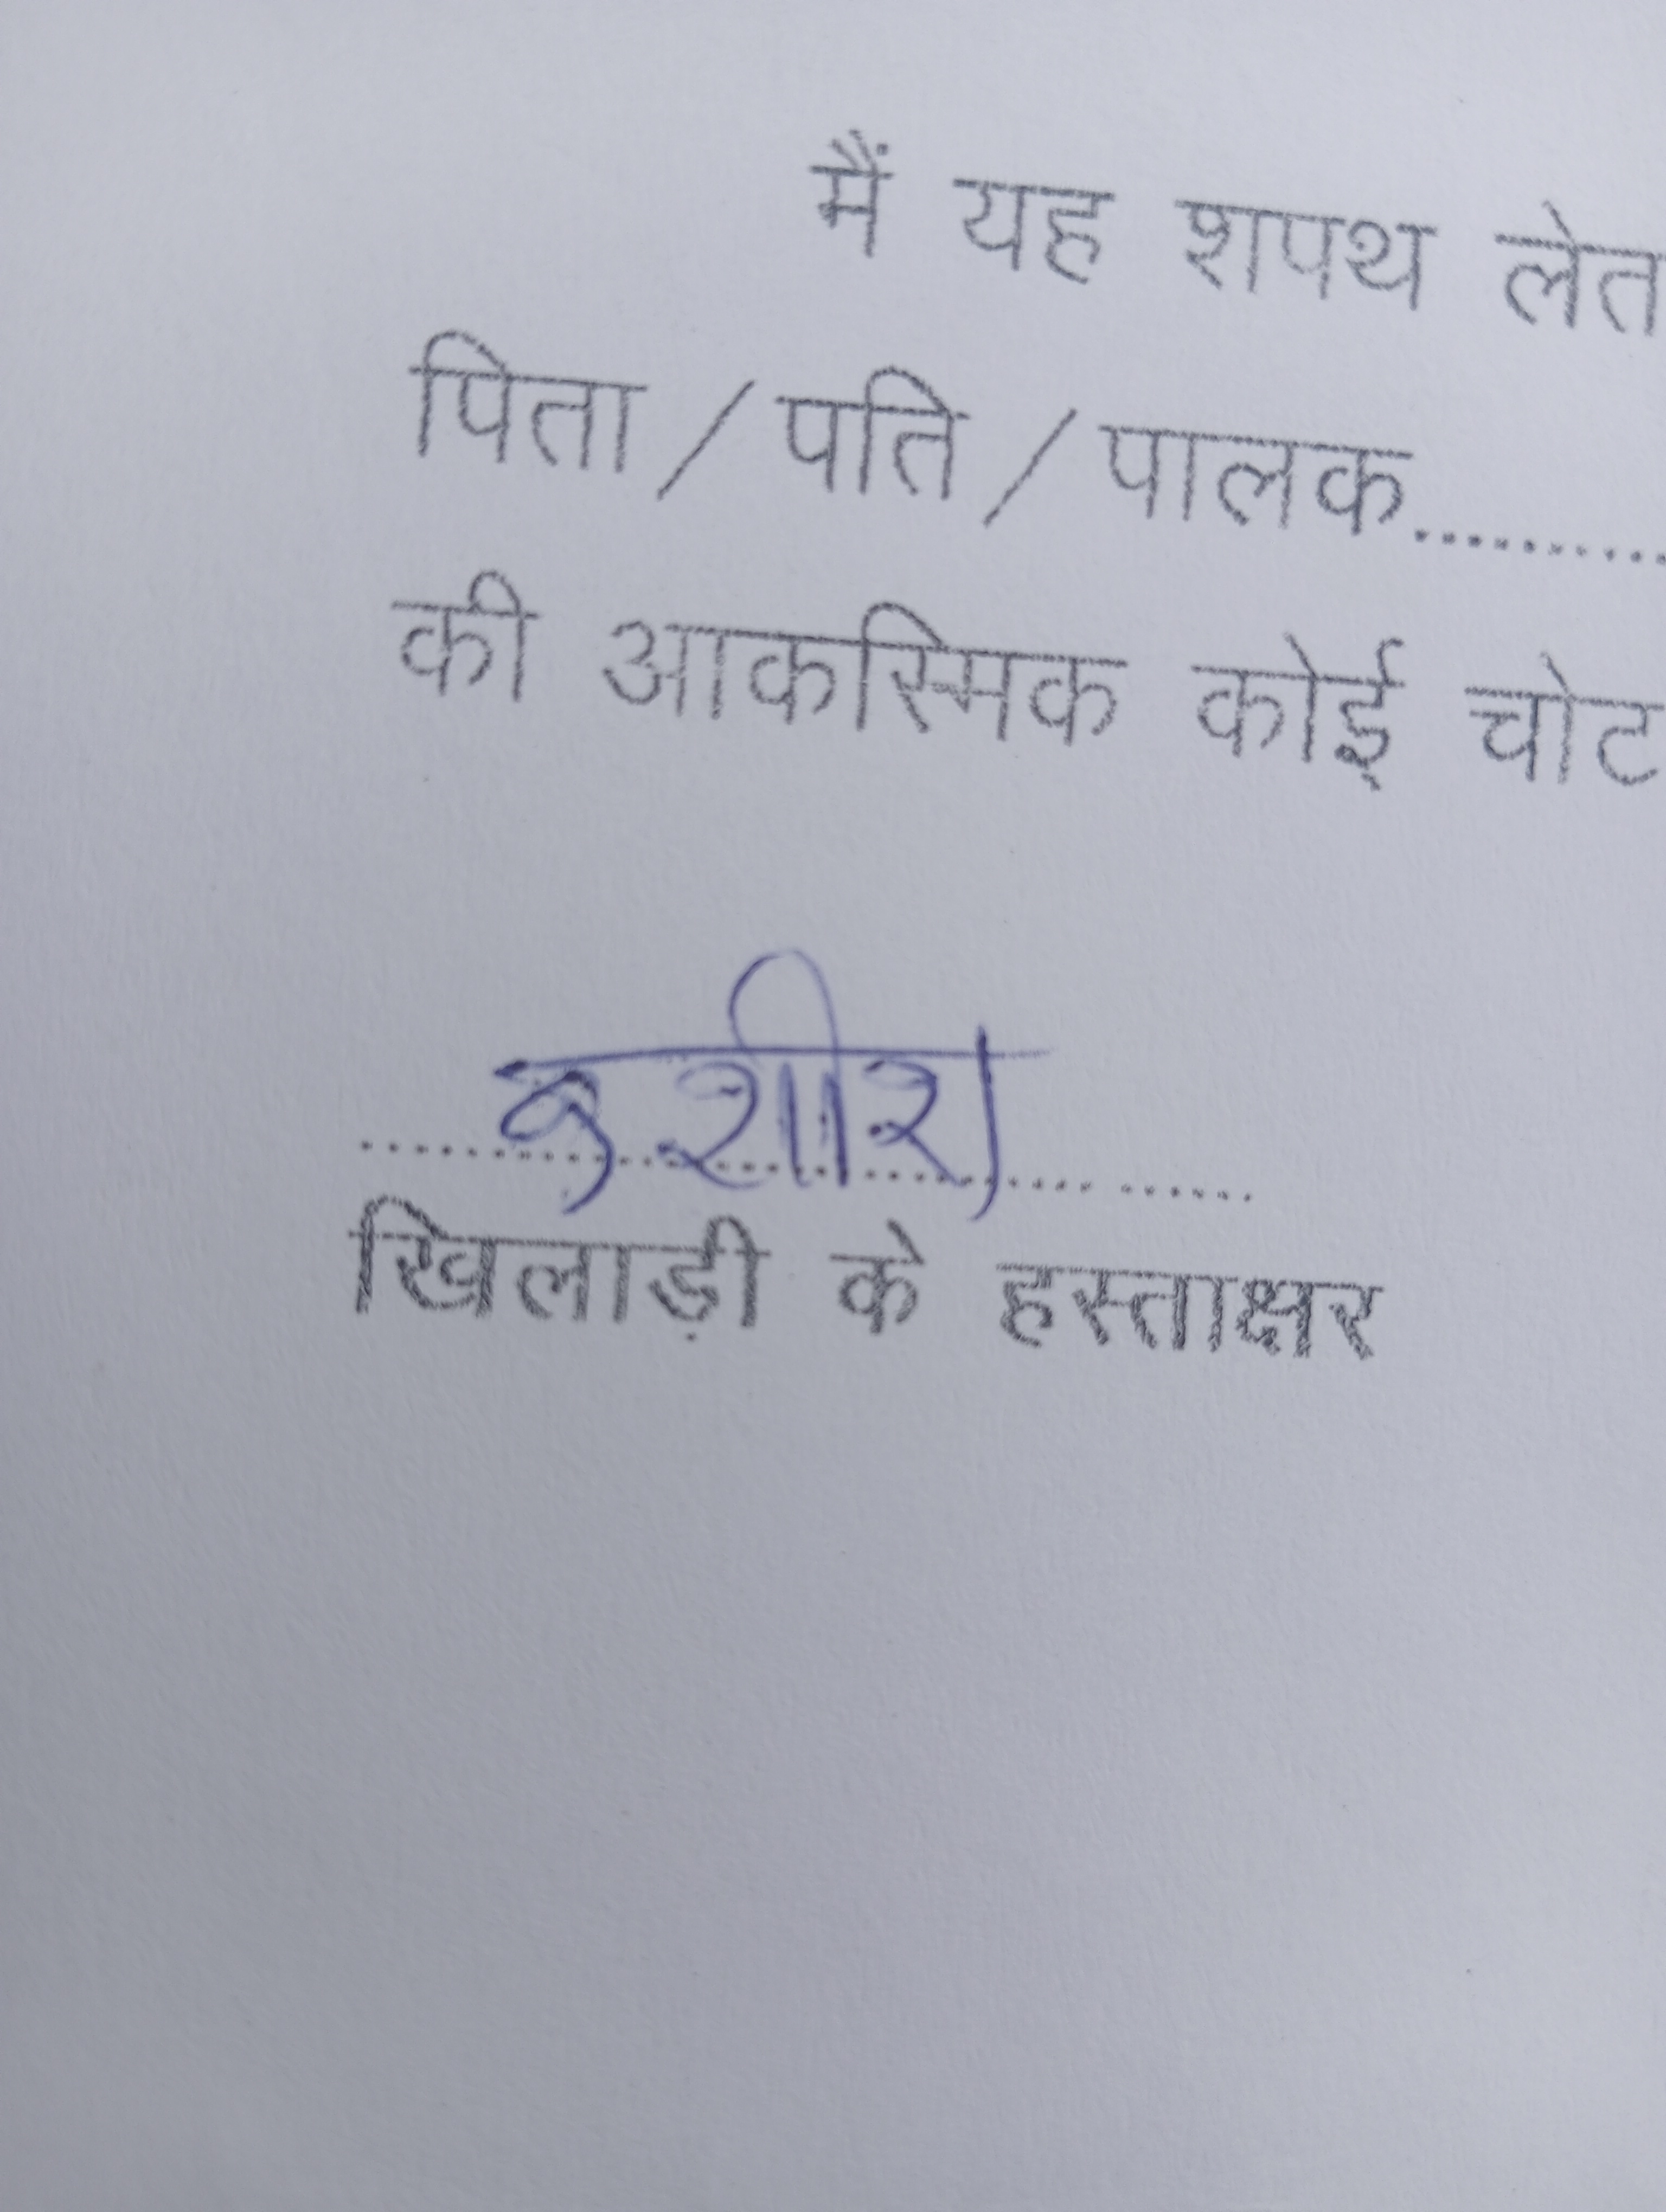 मैं यह शपथ लेत
पिता / पति / पालक...........
की आकस्मिक कोई चोट
खिलाड़ी के हस्ताक्षर